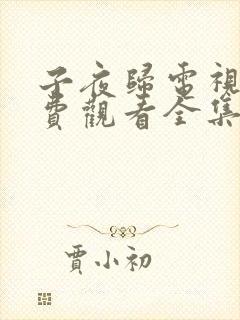 子夜歸電視
費觀看全集
賈小初